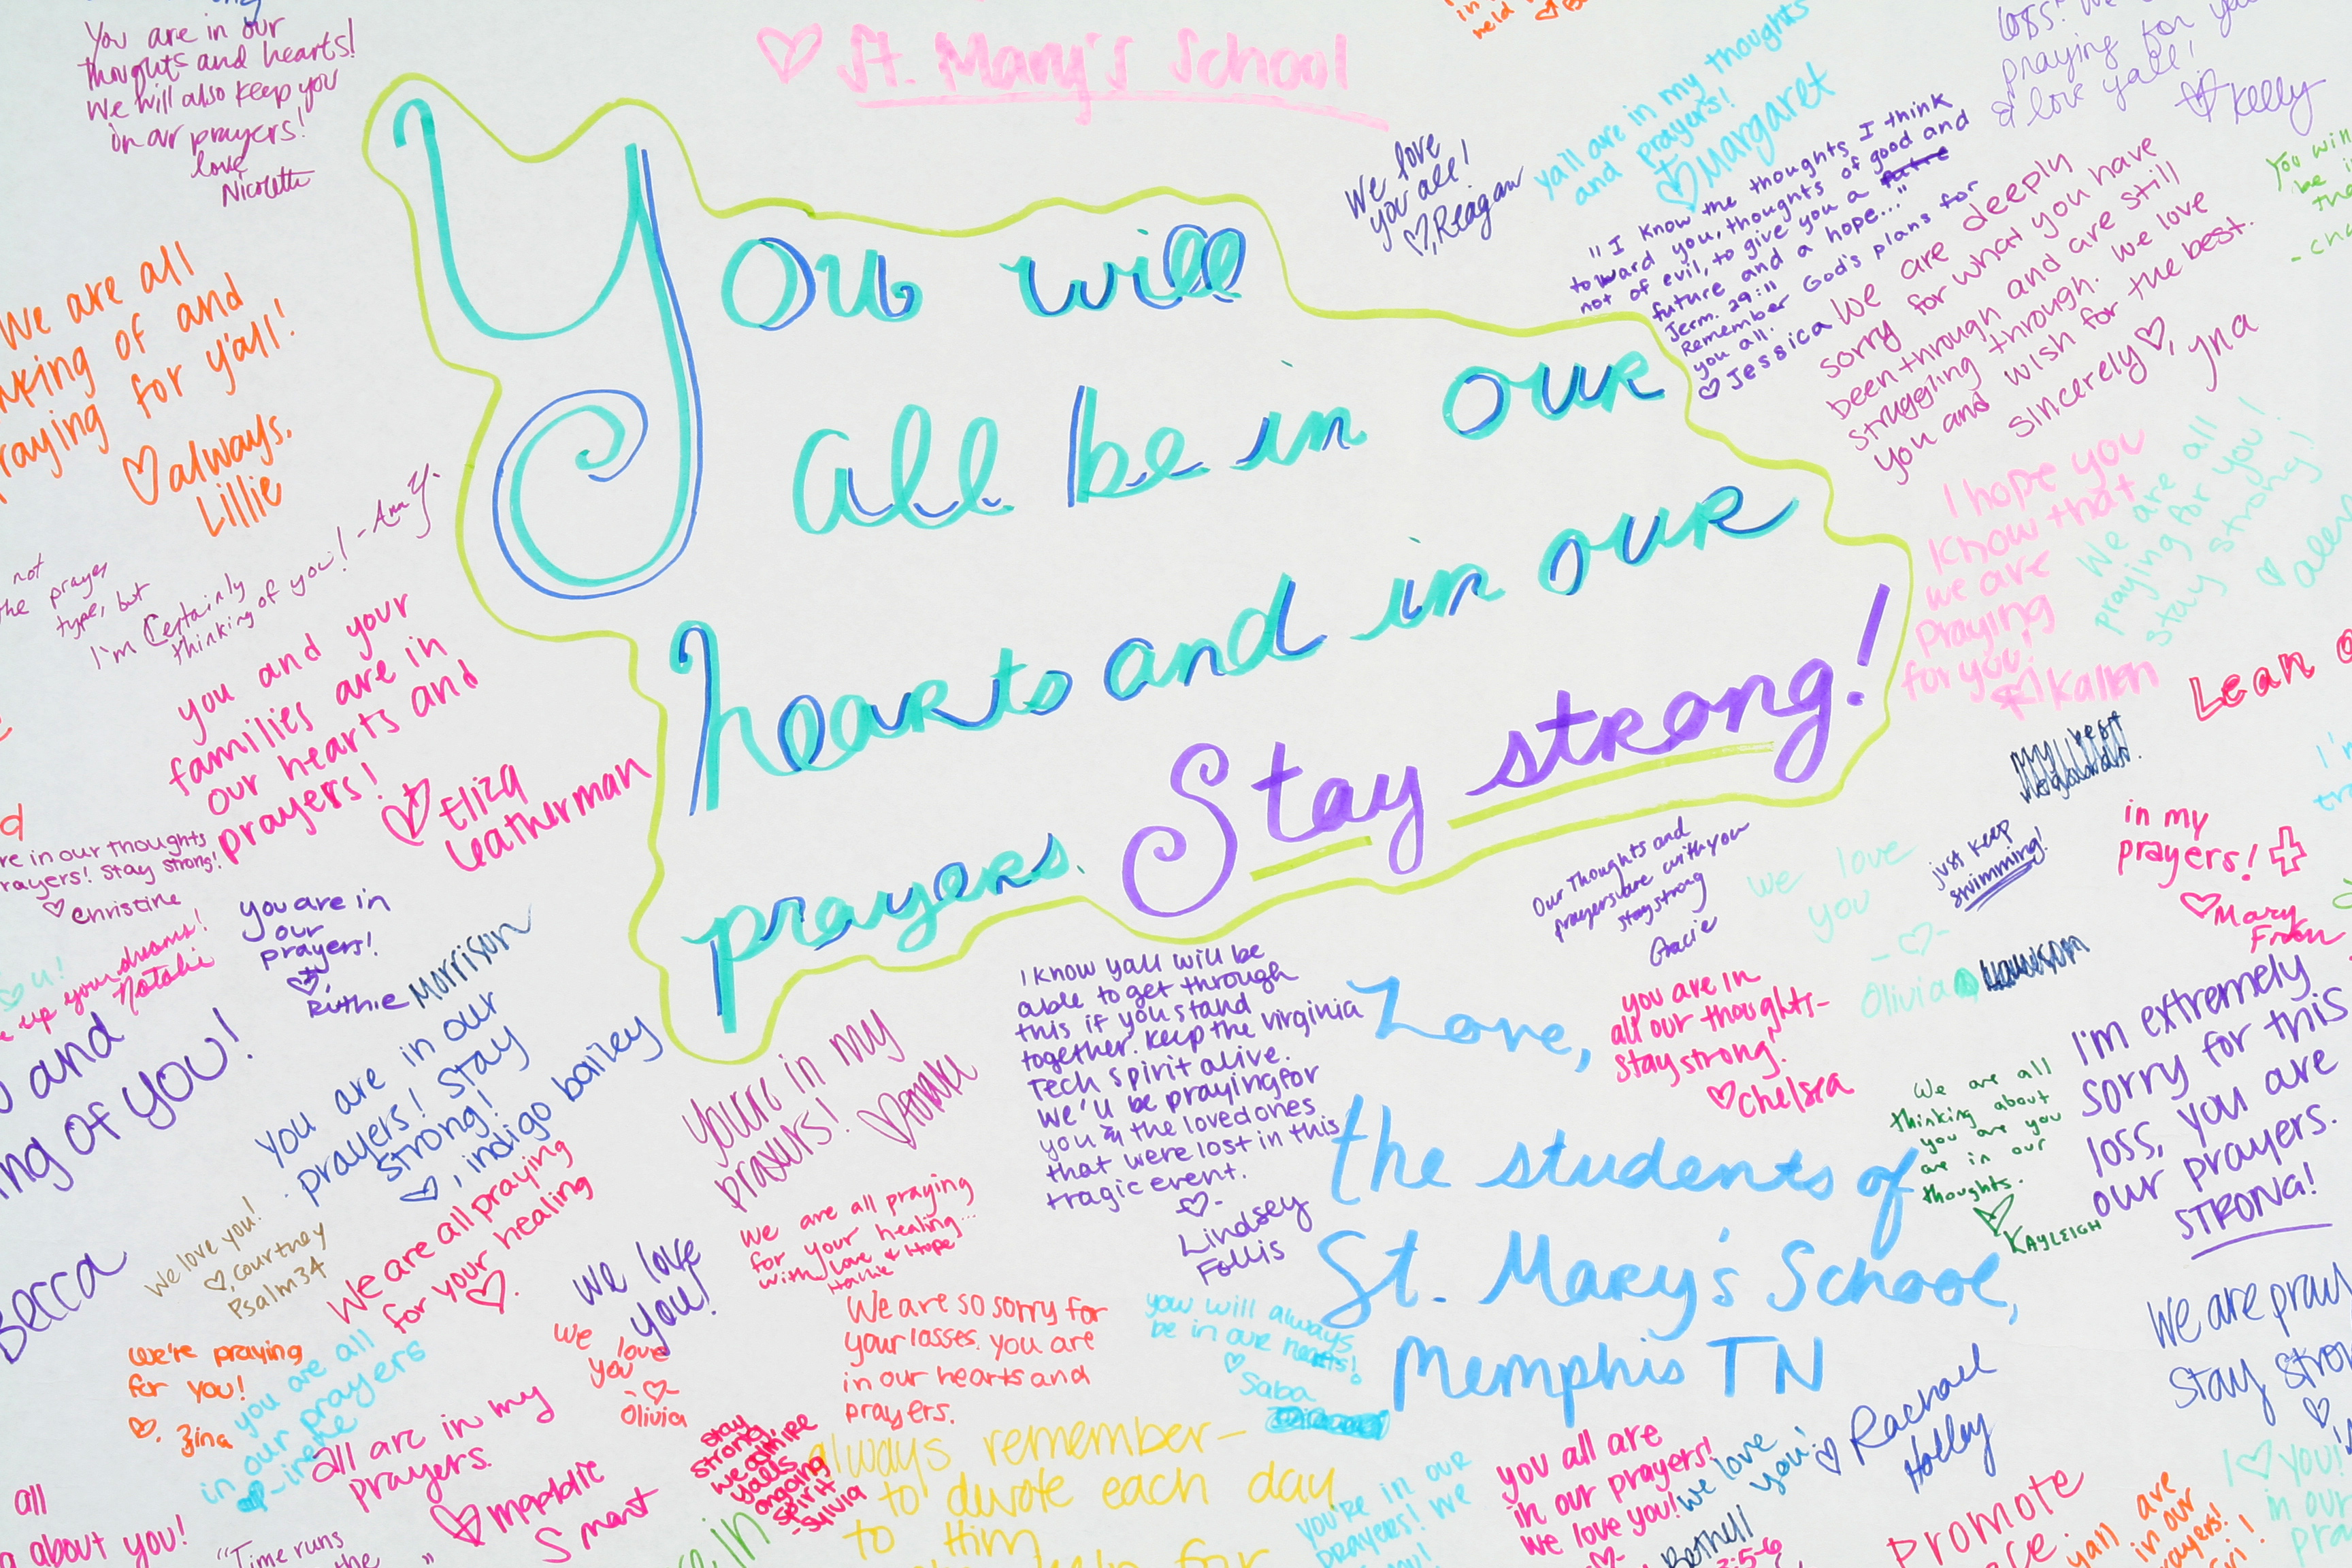 You are in our
thoughts and hearts!
We will also keep you
in our prayers!
love,
Nicolette
♡ St. Mary's School
You will
all be in our
hearts and in our
prayers. Stay strong!
Love,
the students of
St. Mary's School,
Memphis TN
We love
you all!
♡, Reagan
ya'll are in my thoughts
and prayers!
♡ Margaret
loss. We
praying for you
& love yall!
♡ Kelly
"I know the thoughts I think
toward you, thoughts of good and
not of evil, to give you a
future and a hope..."
Jerm. 29:11
Remember God's plans for
you all.
♡ Jessica
We are deeply
sorry for what you have
been through and are still
struggling through. We love
you and wish for the best.
Sincerely ♡, yna
You will
be in
We are all
king of and
raying for y'all!
♡ always,
Lillie
not
the prayer
type, but
I'm Certainly
thinking of you! - Ana Y.
you and your
families are in
our hearts and
prayers!
♡ Eliza
Leatherman
I hope you
know that
we are
praying
for you!
♡ Kallen
We are all
praying for you!
stay strong!
Lean
my best
just keep
swimming!
in my
prayers!
♡ Mary
Fran
re in our thoughts
rayers! Stay strong!
♡ Christine
up your dreams!
Natalie
you are in
our
prayers!
♡,
Ruthie Morrison
Our Thoughts and
prayers are with you
stay strong
Gracie
We love
you
- ♡ -
Olivia
you are in
all our thoughts-
stay strong!
♡ Chelsea
I know yall will be
able to get through
this if you stand
together. Keep the virginia
Tech spirit alive.
We'll be praying for
you & the loved ones
that were lost in this
tragic event.
♡-
Lindsey
Follis
you're in my
prayers!
and
ng of you!
Becca
you are in our
prayers! Stay
strong!
♡, indigo bailey
We are all
thinking about
you are you
are in our
thoughts.
♡
Kayleigh
I'm extremely
sorry for this
loss, you are
our prayers.
STRONG!
We love you!
♡, Courtney
Psalm 34
We are all praying
for your healing
♡.
we are all praying
for your healing...
with Love & Hope
Hallie
We love
you!
we love
you
- ♡ -
Olivia
We are so sorry for
your losses. you are
in our hearts and
prayers.
you will always
be in our hearts!
♡ Saba
We're praying
for you!
♡. Zina
you are all
in our prayers
-irene
all are in my
prayers.
♡ Maddie
Smart
Stay
strong,
we admire
yalls
ongoing
spirit
-Sylvia
always remember-
to devote each day
to Him
for
you're in our
prayers! We
you all are
in our prayers!
We love you!
we love
you!
♡ Rachael
Holley
Bethell
3:5-6
We are pray
stay stron
promote
yall are
in our
prayers!
I ♡ you!
in our
all
about you!
"Time runs
the